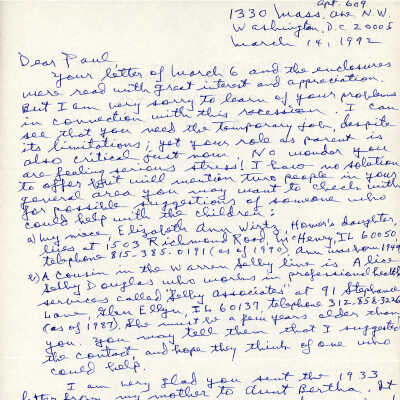 Apt. 609
1330 Mass. Ave N.W.
Washington, D.C 20005
March 14, 1992
Dear Paul,
Your letter of March 6 and the enclosures
were read with great interest and appreciation.
But I am very sorry to learn of your problems
in connection with this recession. I can
see that you need the temporary job, despite
its limitations; yet your role as parent is
also critical just now. No wonder you
are feeling serious stress! I have no solution
to offer but will mention two people in your
general area you may want to check with
for possible suggestions of someone who
could help with the children:
1) my niece Elizabeth Ann Wirtz, Homer's daughter,
lives at 1503 Richmond Road, McHenry, IL 60050
telephone 815-385-0191 (as of 1990) Ann was born 1949
2) A cousin in the Warren Selby line is Alice
Selby Douglas who works in professional health
services called "Selby Associates" at 91 Stephanie
Lane, Glen Ellyn, IL 60137, telephone 312-858-3226
(as of 1987). She must be a few years older than
you. You may tell them that I suggested
the contact, and hope they think of one who
could help.
I am very glad you sent the 1933
letter from my mother to Aunt Bertha. It